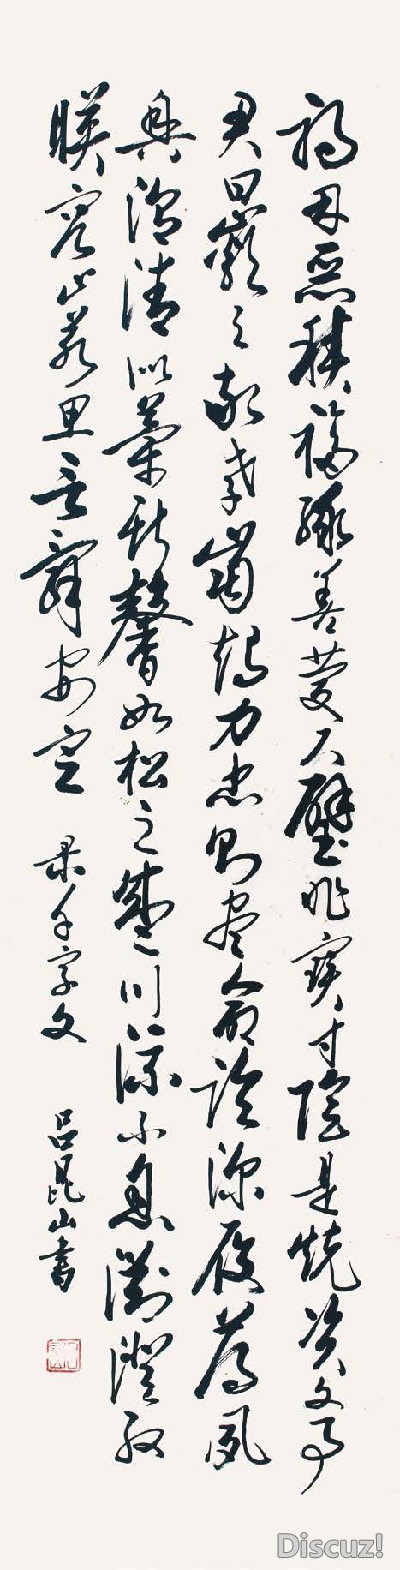 禍因惡積福緣善慶尺璧非寶寸陰是競資父事
君曰嚴与敬孝當竭力忠則盡命臨深履薄夙
興溫清似蘭斯馨如松之盛川流不息淵澄取
暎容止若思言辭安定 录千字文 吕昆山書
Discuz!